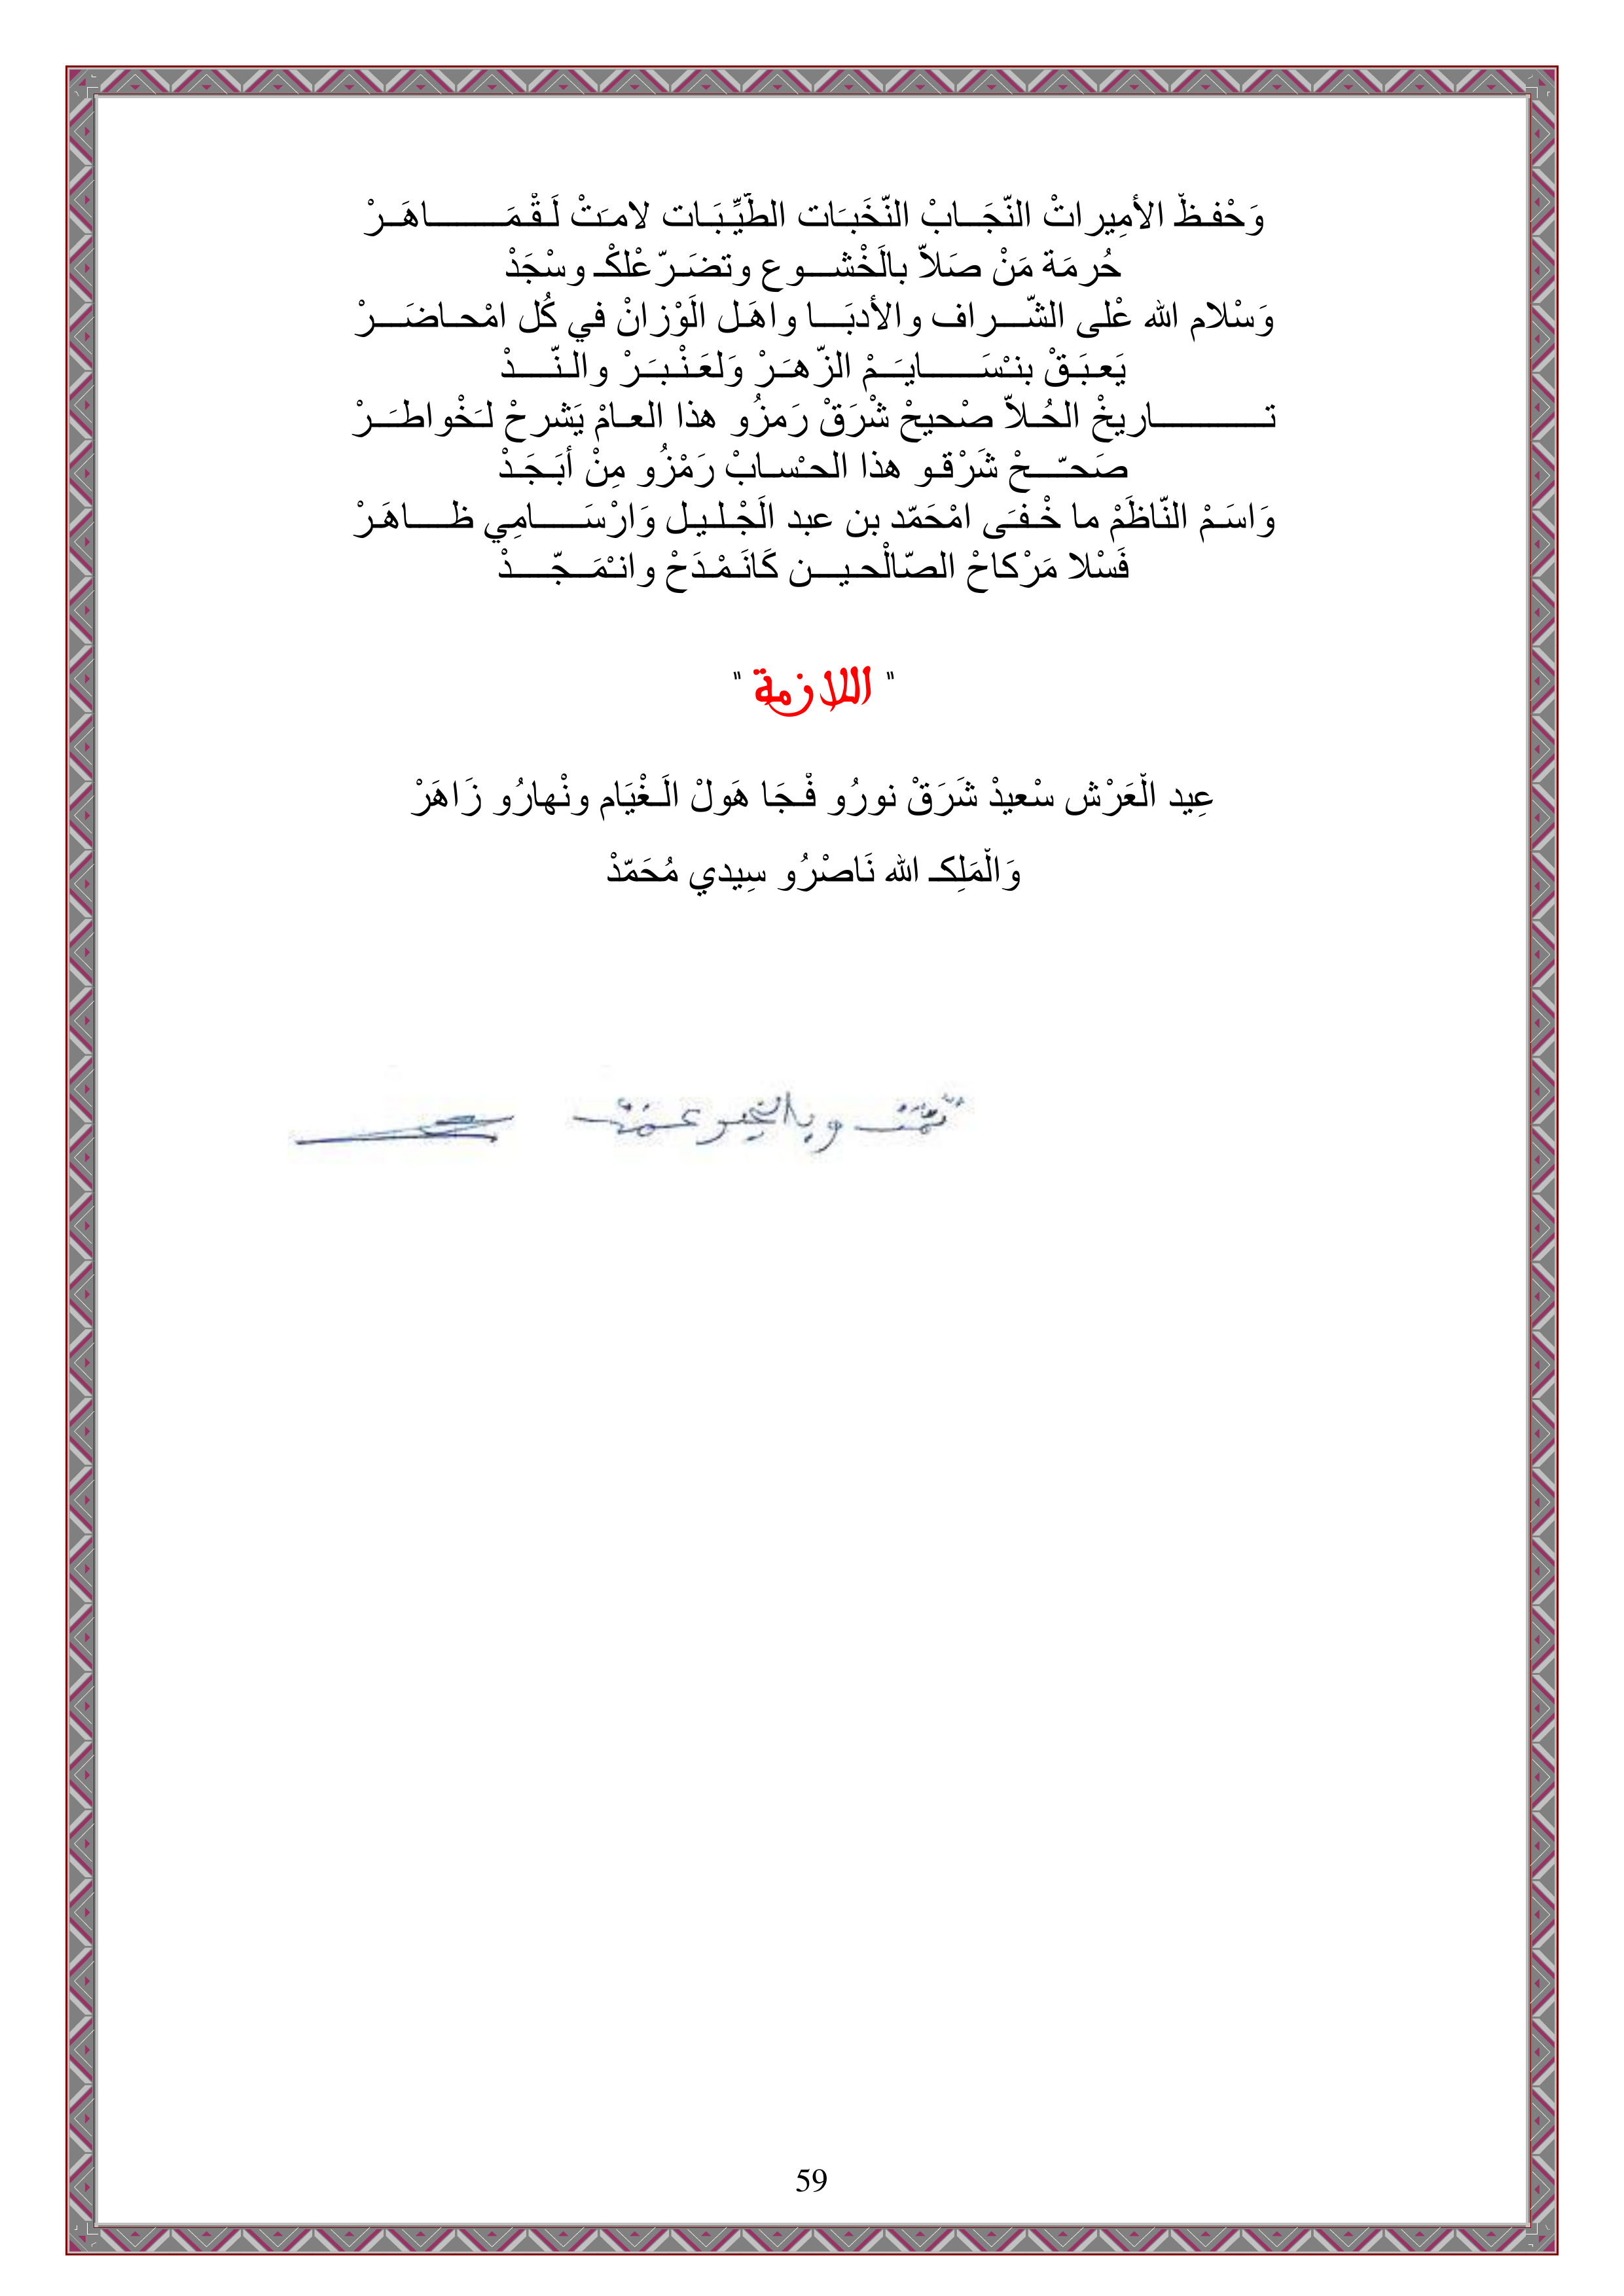 وَحْفـظّ الأمِيراتْ النّجَـــابْ النّخَبـَات الطّيِّـبَــات لامـَتْ لَـقْـمَـــــــــاهَــرْ
حُرمَة مَنْ صَلاّ بالَخْشــــوع وتضَـرّعْلكْـ وسْجَدْ
وَسْلام الله عْلى الشّــــراف والأدبَــــا واهَـل الَوْزانْ في كُل امْحــاضَــــرْ
يَعـبَـقْ بنـْسَــــــــايـَــمْ الزّهـَـرْ وَلعَـنْـبـَـرْ والـنّـــــدْ
تـــــــــــــاريخْ الحُـلاّ صْحيحْ شْرَقْ رَمزُو هذا العـامْ يَشرحْ لـَخْواطــَـرْ
صَحـّــــحْ شَرْقـو هذا الحـْسـابْ رَمْـزُو مِنْ أبَـجَـدْ
وَاسَـمْ النّاظَمْ ما خْـفـَى امْحَمّد بن عبد الَجْـلـيـل وَارْسَــــــامِي ظــــــاهَـرْ
فَسْلا مَرْكاحْ الصّالْحـيـــن كَانَـمْـدَحْ وانـْمَـــجّـــــدْ
" اللازمة "
عِيد الّعَرْش سْعيدْ شَرَقْ نورُو فّـجَـا هَولْ الَـغْيَام ونْهارُو زَاهَرْ
وَالّمَلِكـ الله نَاصْرُو سِيدي مُحَمّدْ
تمّت وبالخير عمّت
59